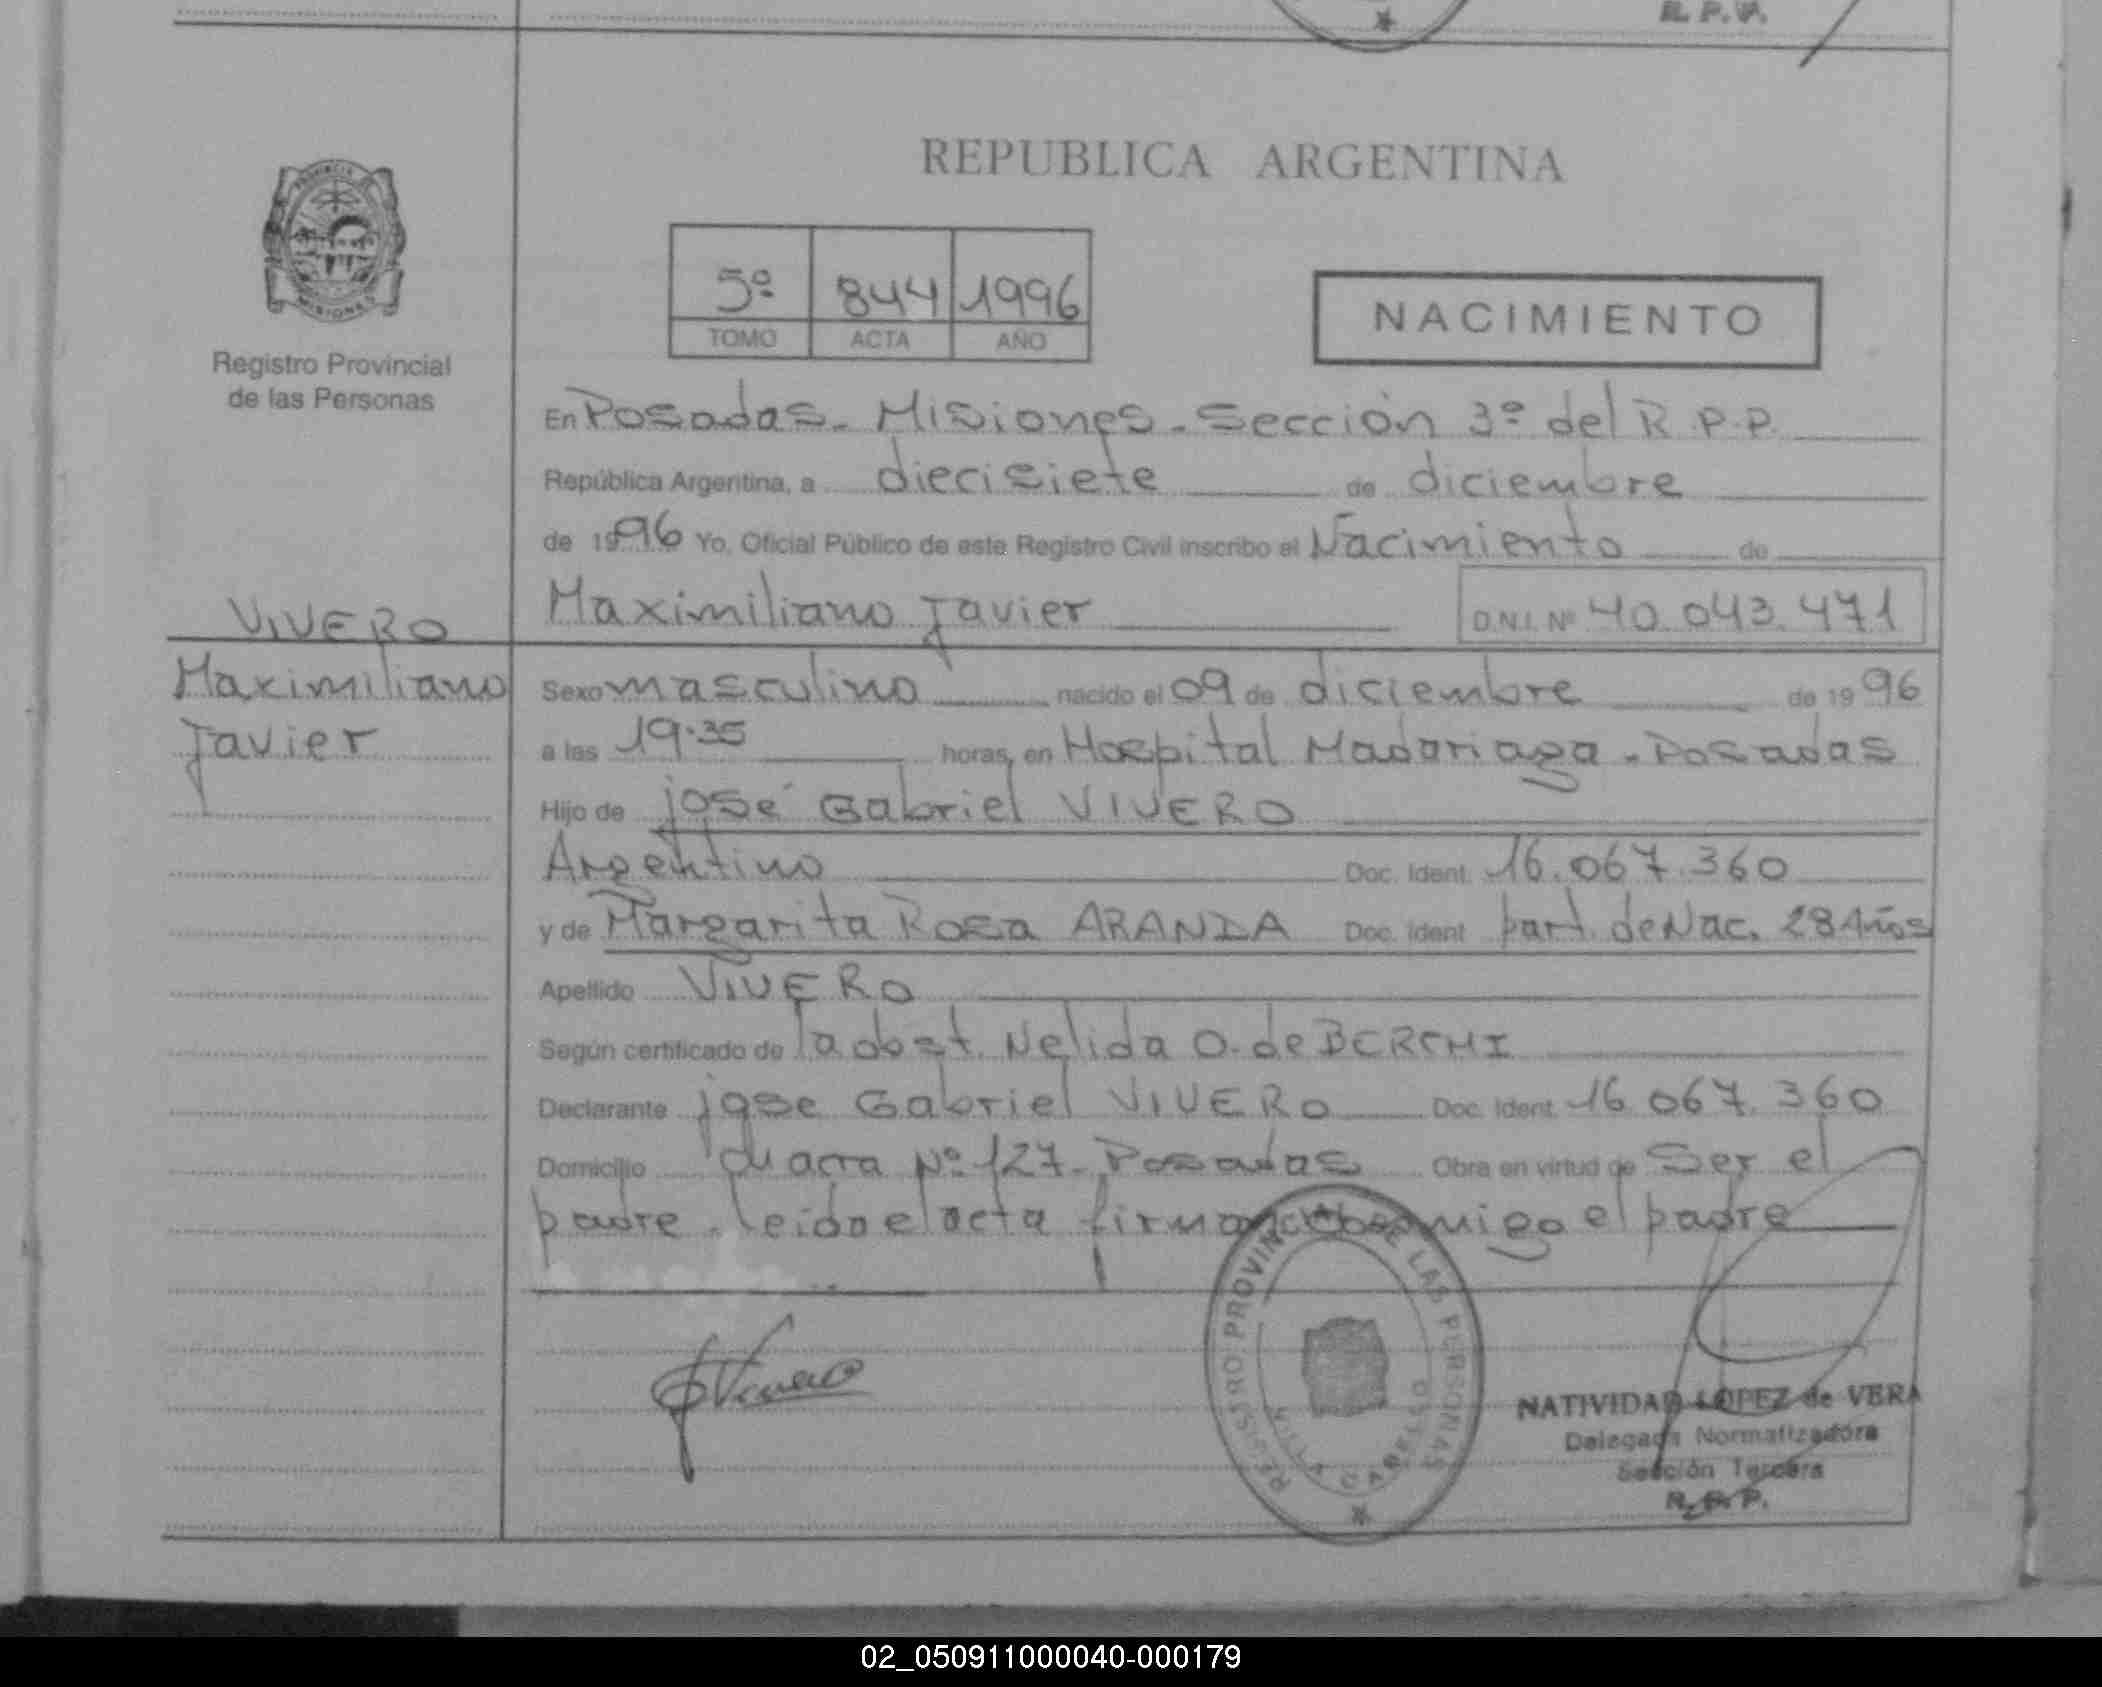 R. P. P.
REPUBLICA ARGENTINA
PROVINCIA DE
MISIONES
Registro Provincial
de las Personas
5º 844 1996
TOMO ACTA AÑO
NACIMIENTO
En Posadas - Misiones - Sección 3º del R.P.P.
República Argentina, a diecisiete de diciembre
de 1996 Yo, Oficial Público de este Registro Civil inscribo el Nacimiento de
VIVERO
Maximiliano Javier D.N.I. Nº 40.043.471
Maximiliano
Javier
Sexo masculino nacido el 09 de diciembre de 1996
a las 19.35 horas, en Hospital Madariaga - Posadas
Hijo de josé Gabriel VIVERO
Argentino Doc. Ident. 16.067.360
y de Margarita Rosa ARANDA Doc. Ident part. de Nac. 28 Años
Apellido VIVERO
Según certificado de la obst. Nelida O. de
Declarante jose Gabriel VIVERO Doc. Ident. 16.067.360
Domicilio chacra Nº 127 - Posadas Obra en virtud de Ser el
padre - leido el acta firma conmigo el padre
Vivero
REGISTRO PROVINCIAL DE LAS PERSONAS
VILLA CABELLO
NATIVIDAD LOPEZ de VERA
Delegada Normatizadora
Sección Tercera
R. P. P.
02_050911000040-000179